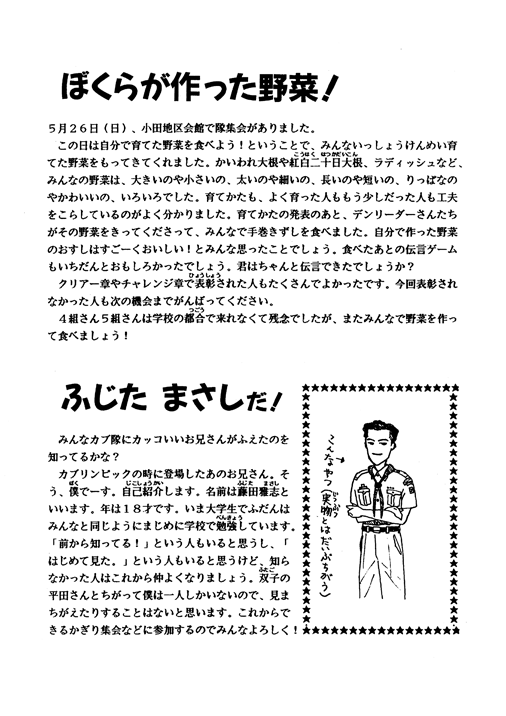 ぼくらが作った野菜!
５月２６日（日）、小田地区会館で隊集会がありました。
この日は自分で育てた野菜を食べよう！ということで、みんないっしょうけんめい育
こうはく はつかだいこん
てた野菜をもってきてくれました。かいわれ大根や紅白二十日大根、ラディッシュなど、
みんなの野菜は、大きいのや小さいの、太いのや細いの、長いのや短いの、りっぱなの
やかわいいの、いろいろでした。育てかたも、よく育った人ももう少しだった人も工夫
をこらしているのがよく分かりました。育てかたの発表のあと、デンリーダーさんたち
がその野菜をきってくださって、みんなで手巻きずしを食べました。自分で作った野菜
のおすしはすごーくおいしい！とみんな思ったことでしょう。食べたあとの伝言ゲーム
もいちだんとおもしろかったでしょう。君はちゃんと伝言できたでしょうか？
ひょうしょう
クリアー章やチャレンジ章で表彰された人もたくさんでよかったです。今回表彰され
なかった人も次の機会までがんばってください。
つごう
４組さん５組さんは学校の都合で来れなくて残念でしたが、またみんなで野菜を作っ
て食べましょう！
ふじた まさしだ!
みんなカブ隊にカッコいいお兄さんがふえたのを
知ってるかな？
カブリンピックの時に登場したあのお兄さん。そ
ぼく じこしょうかい ふじた まさし
う、僕でーす。自己紹介します。名前は藤田雅志と
いいます。年は１８才です。いま大学生でふだんは
べんきょう
みんなと同じようにまじめに学校で勉強しています。
「前から知ってる！」という人もいると思うし、「
はじめて見た。」という人もいると思うけど、知ら
なかった人はこれから仲よくなりましょう。双子の
ふたご
平田さんとちがって僕は一人しかいないので、見ま
ちがえたりすることはないと思います。これからで
きるかぎり集会などに参加するのでみんなよろしく！
こんなヤツ（実物とはだいぶちがう）
じつぶつ